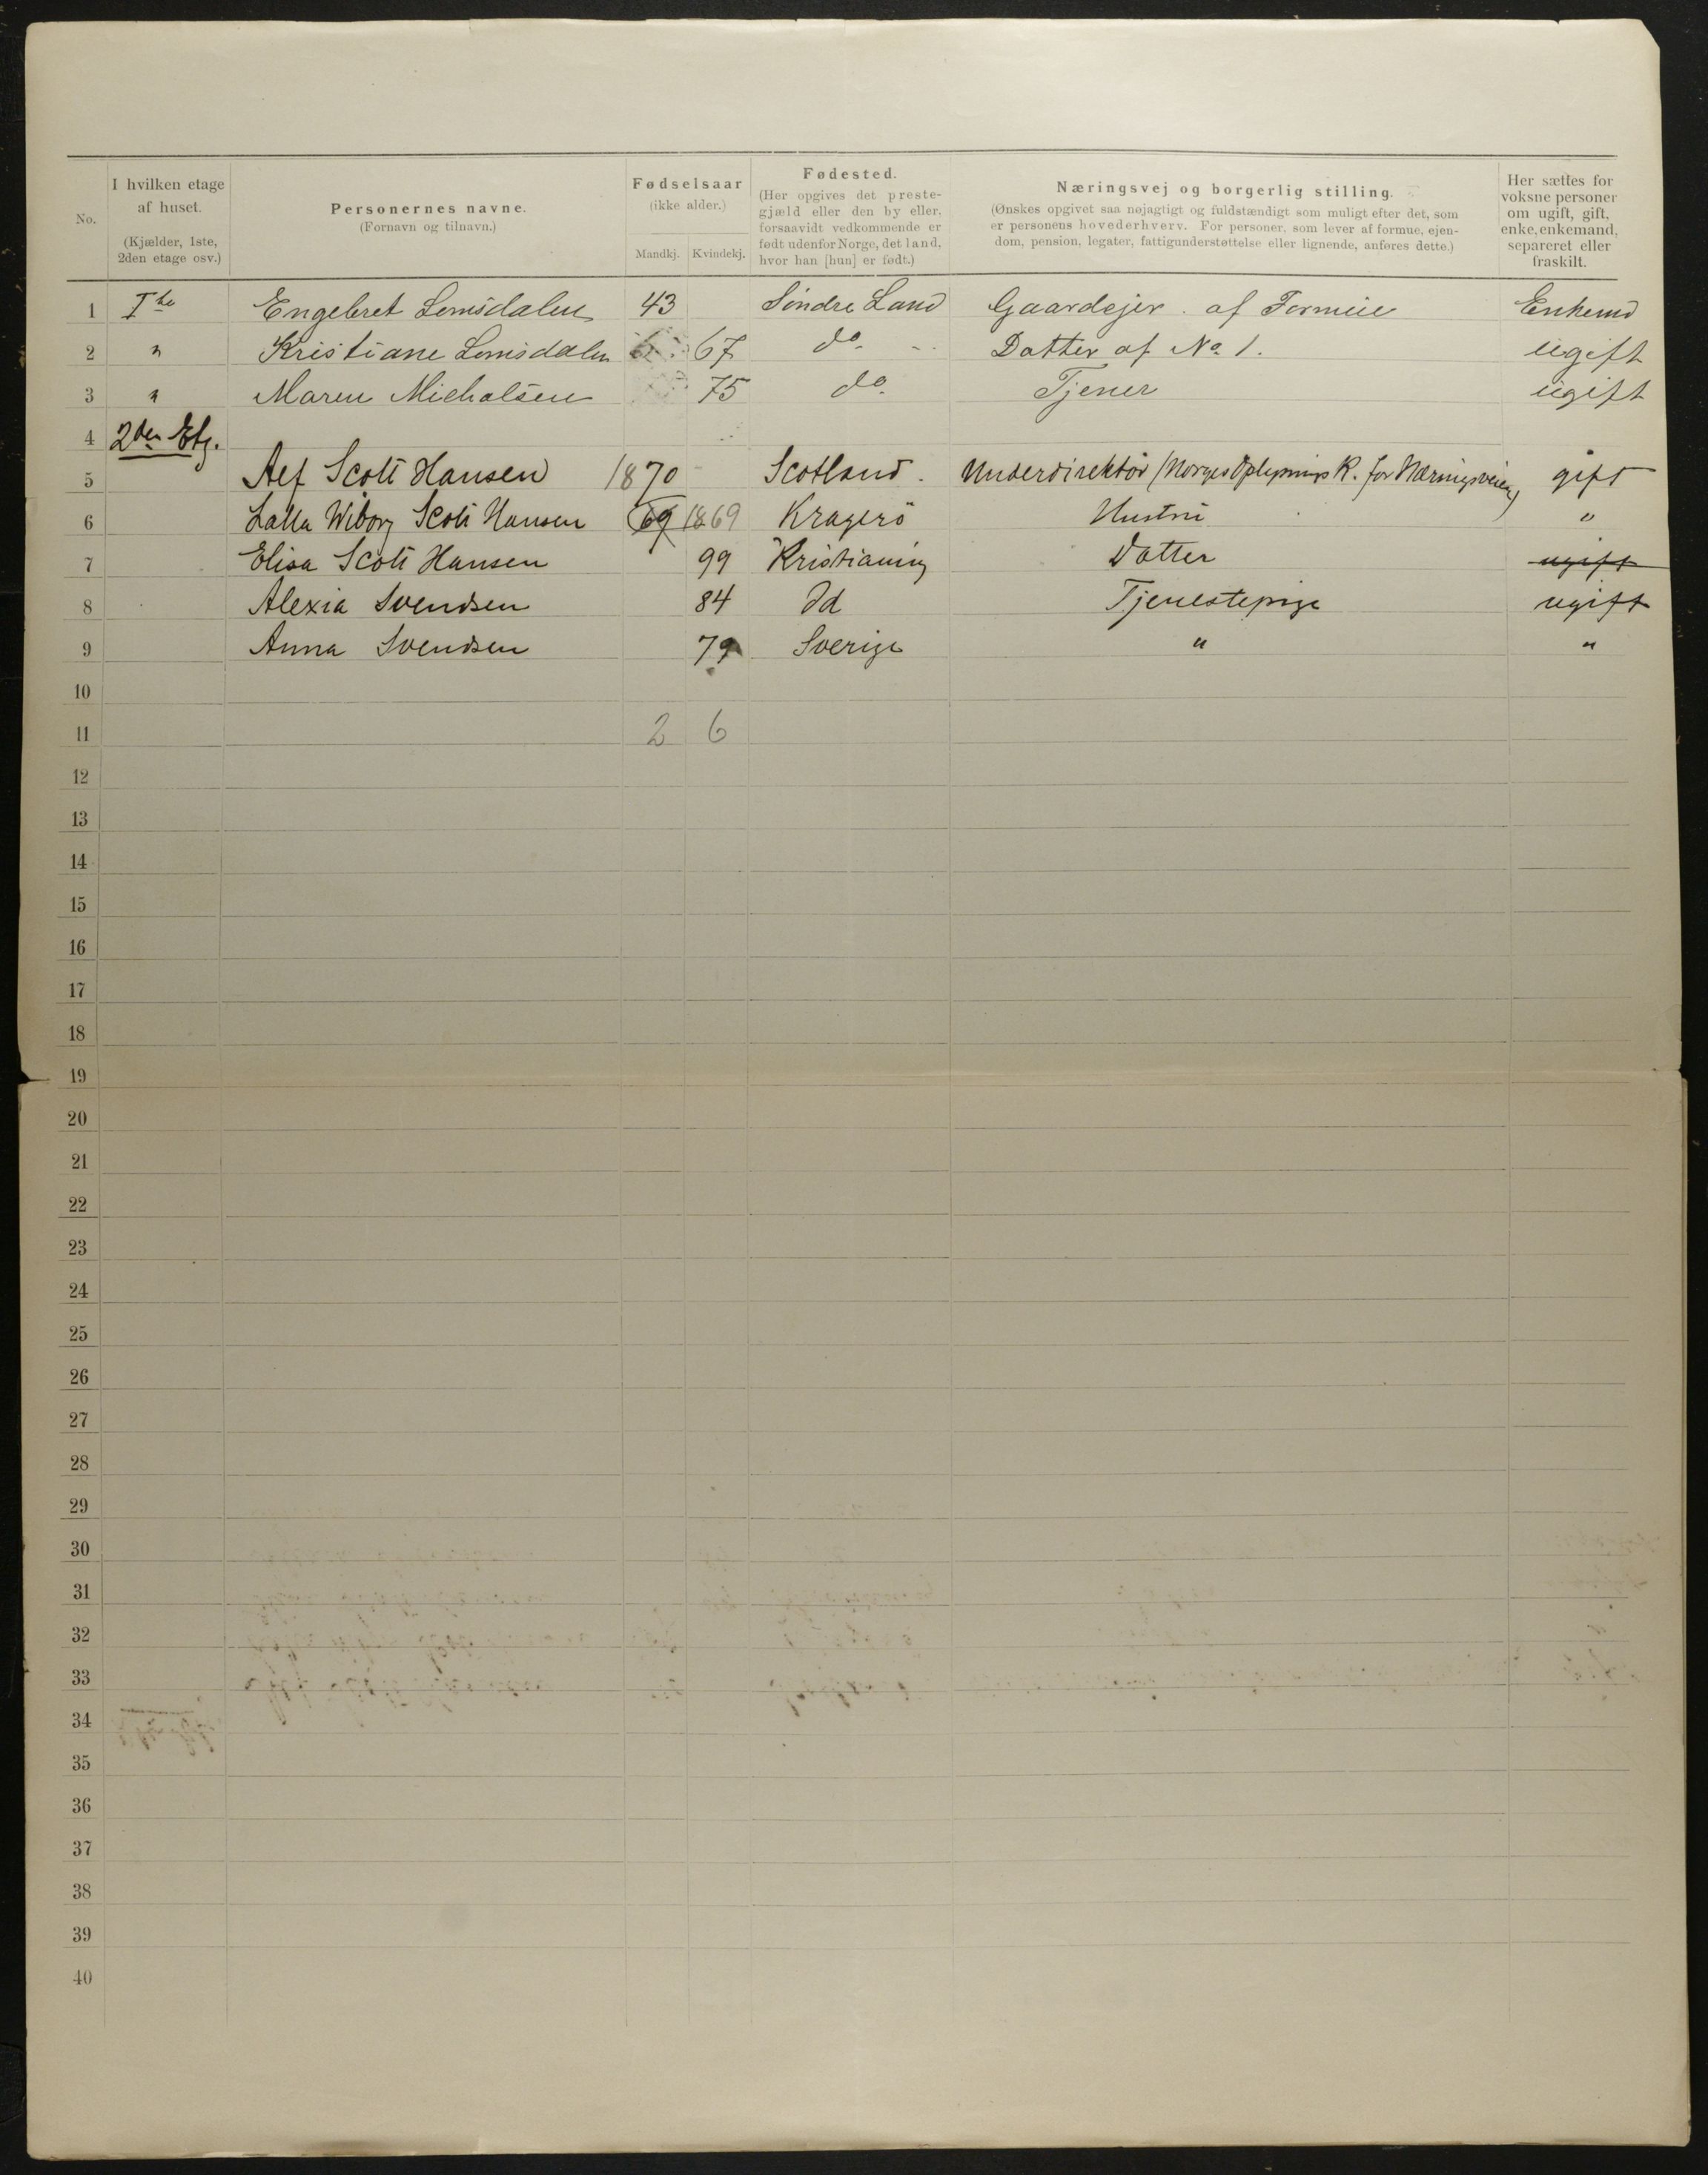 No.
I hvilken etage af huset. (Kjælder, 1ste, 2den etage osv.)
Personernes navne. (Fornavn og tilnavn.)
Fødselsaar (ikke alder.) Mandkj. Kvindekj.
Fødested. (Her opgives det prestegjæld eller den by eller, forsaavidt vedkommende er født udenfor Norge, det land, hvor han [hun] er født.)
Næringsvej og borgerlig stilling. (Ønskes opgivet saa nøjagtigt og fuldstændigt som muligt efter det, som er personens hovederhverv. For personer, som lever af formue, ejendom, pension, legater, fattigunderstøttelse eller lignende, anføres dette.)
Her sættes for voksne personer om ugift, gift, enke, enkemand, separeret eller fraskilt.
1 Engebret Lomsdalen 43 Söndre Land Gaardejer. af Formue Enkemd
2 " Kristiane Lomsdalen 67 do. Datter af No. 1. ugift
3 " Maren Michalsen 75 do. Tjener ugift
4 2den Etg.
5 Scott Hansen 1870 Scotland. Underdirektör (Norges Oplysnings K. for Næringsveien) gift
6 Lalla Wiborg Scott Hansen 69 1869 Kragerö Hustru "
7 Elisa Scott Hansen 99 Kristiania Datter ugift
8 Alexia Svendsen 84 Id Tjenestepige ugift
9 Anna Svendsen 79 Sverige " "
10
11 2 6
12
13
14
15
16
17
18
19
20
21
22
23
24
25
26
27
28
29
30
31
32
33
34
35
36
37
38
39
40